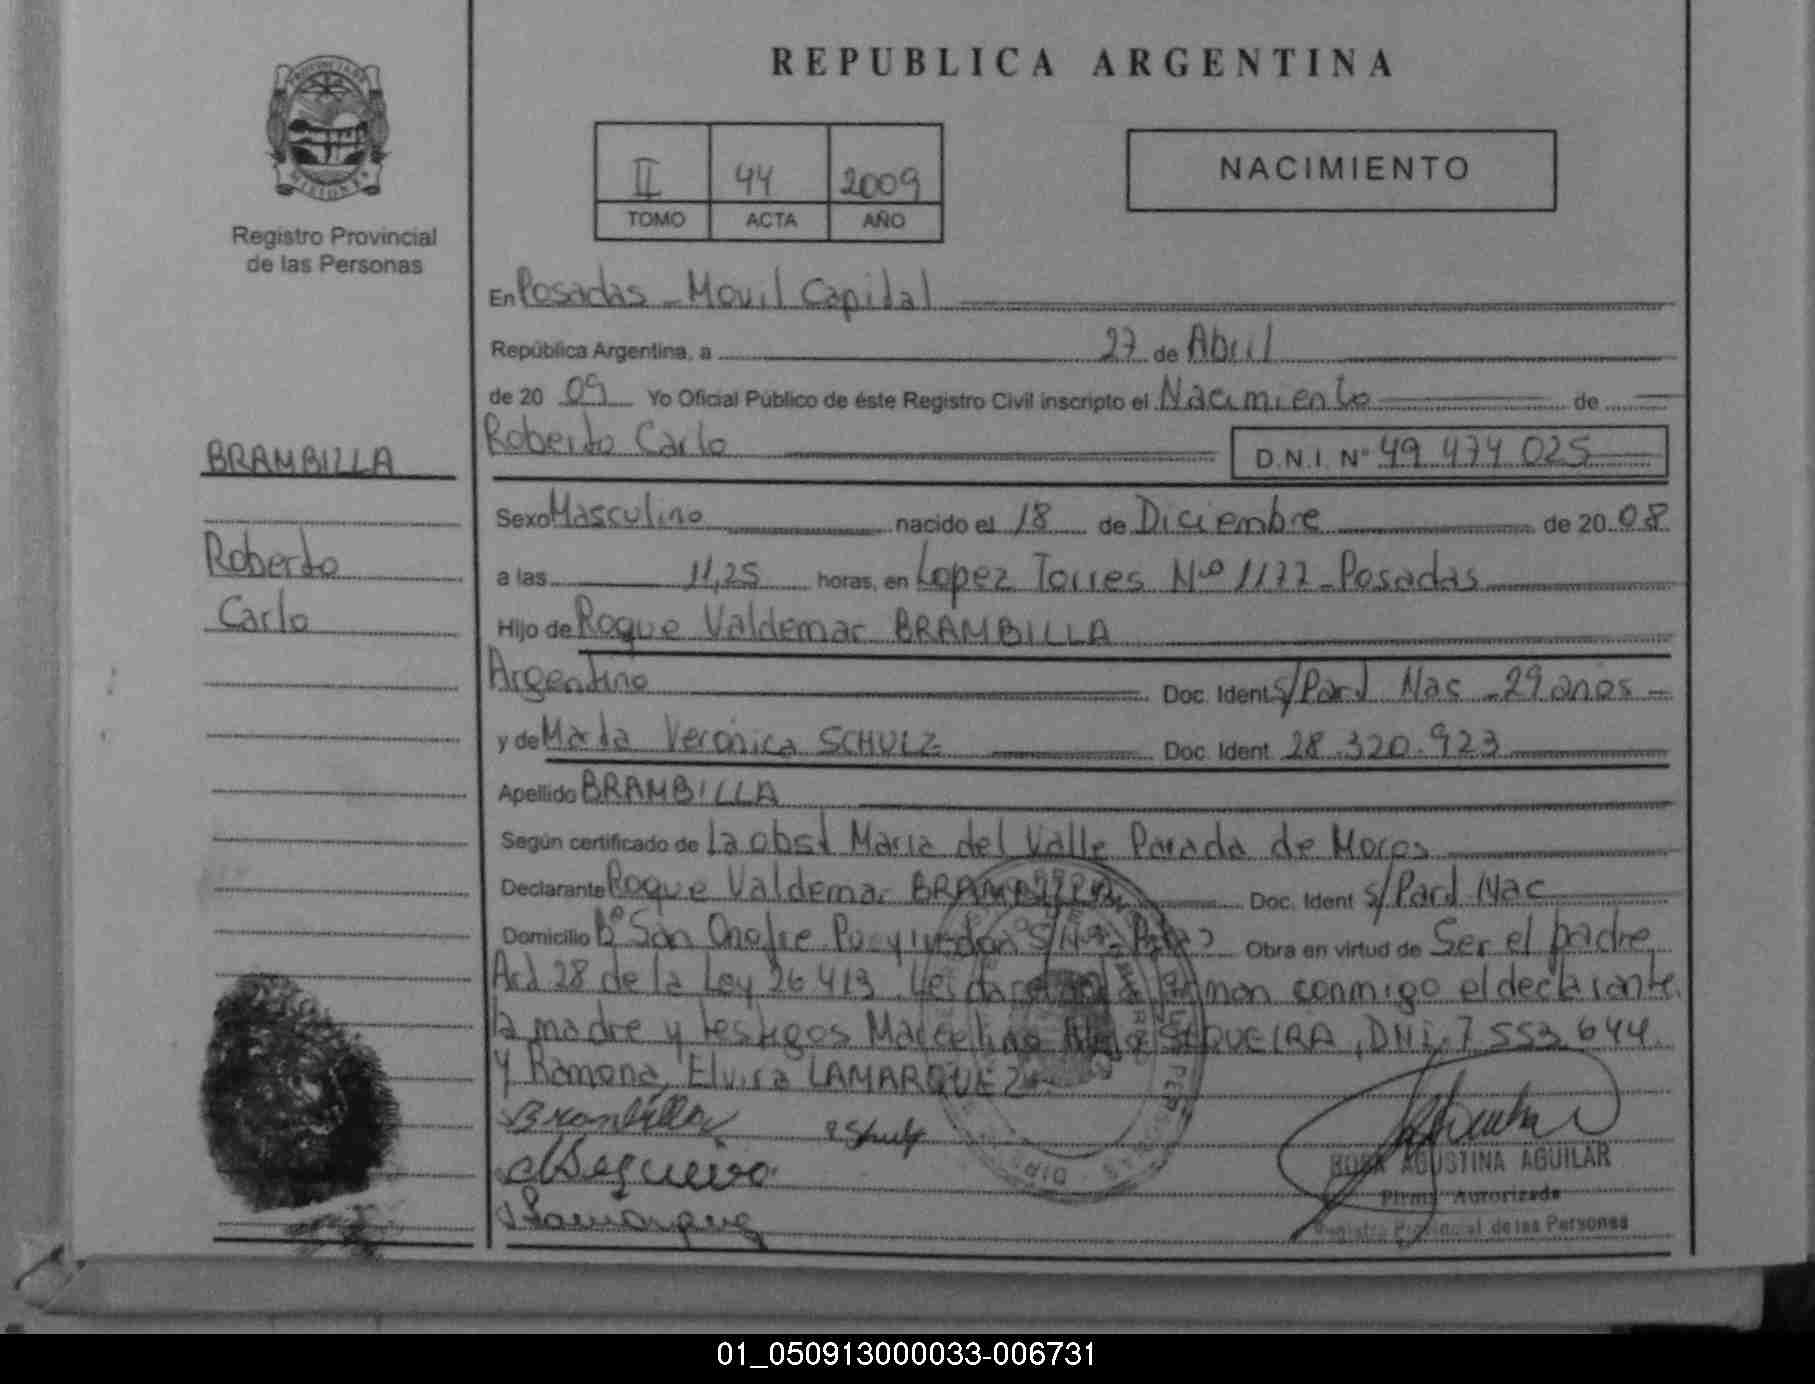 REPUBLICA ARGENTINA
PROVINCIA DE MISIONES
Registro Provincial
de las Personas
II 44 2009
TOMO ACTA AÑO
NACIMIENTO
En Posadas - Movil Capital
República Argentina, a 27 de Abril
de 20 09 Yo Oficial Público de éste Registro Civil inscripto el Nacimiento de
Roberto Carlo D.N.I. Nº 49.474.025
BRAMBILLA
Roberto
Carlo
Sexo Masculino nacido el 18 de Diciembre de 20 08
a las 11,25 horas, en Lopez Torres Nº 1177 - Posadas
Hijo de Roque Valdemar BRAMBILLA
Argentino Doc. Ident. s/Part Nac - 29 años
y de Marta Veronica SCHULZ Doc. Ident. 28.320.923
Apellido BRAMBILLA
Según certificado de La obst Maria del Valle Parada de
Declarante Roque Valdemar BRAMBILLA Doc. Ident s/Part Nac
Domicilio Bº San Onofre Obra en virtud de Ser el padre
Art 28 de la Ley 26.413. Leida el firman conmigo el declarante
la madre y testigos Marcelino SEQUEIRA, DNI. 7.553.644
y Ramona Elvira LAMARQUE
Brambilla
Sequeira
Lamarque
ROSA AGUSTINA AGUILAR
Firma Autorizada
Registro Provincial de las Personas
01_050913000033-006731